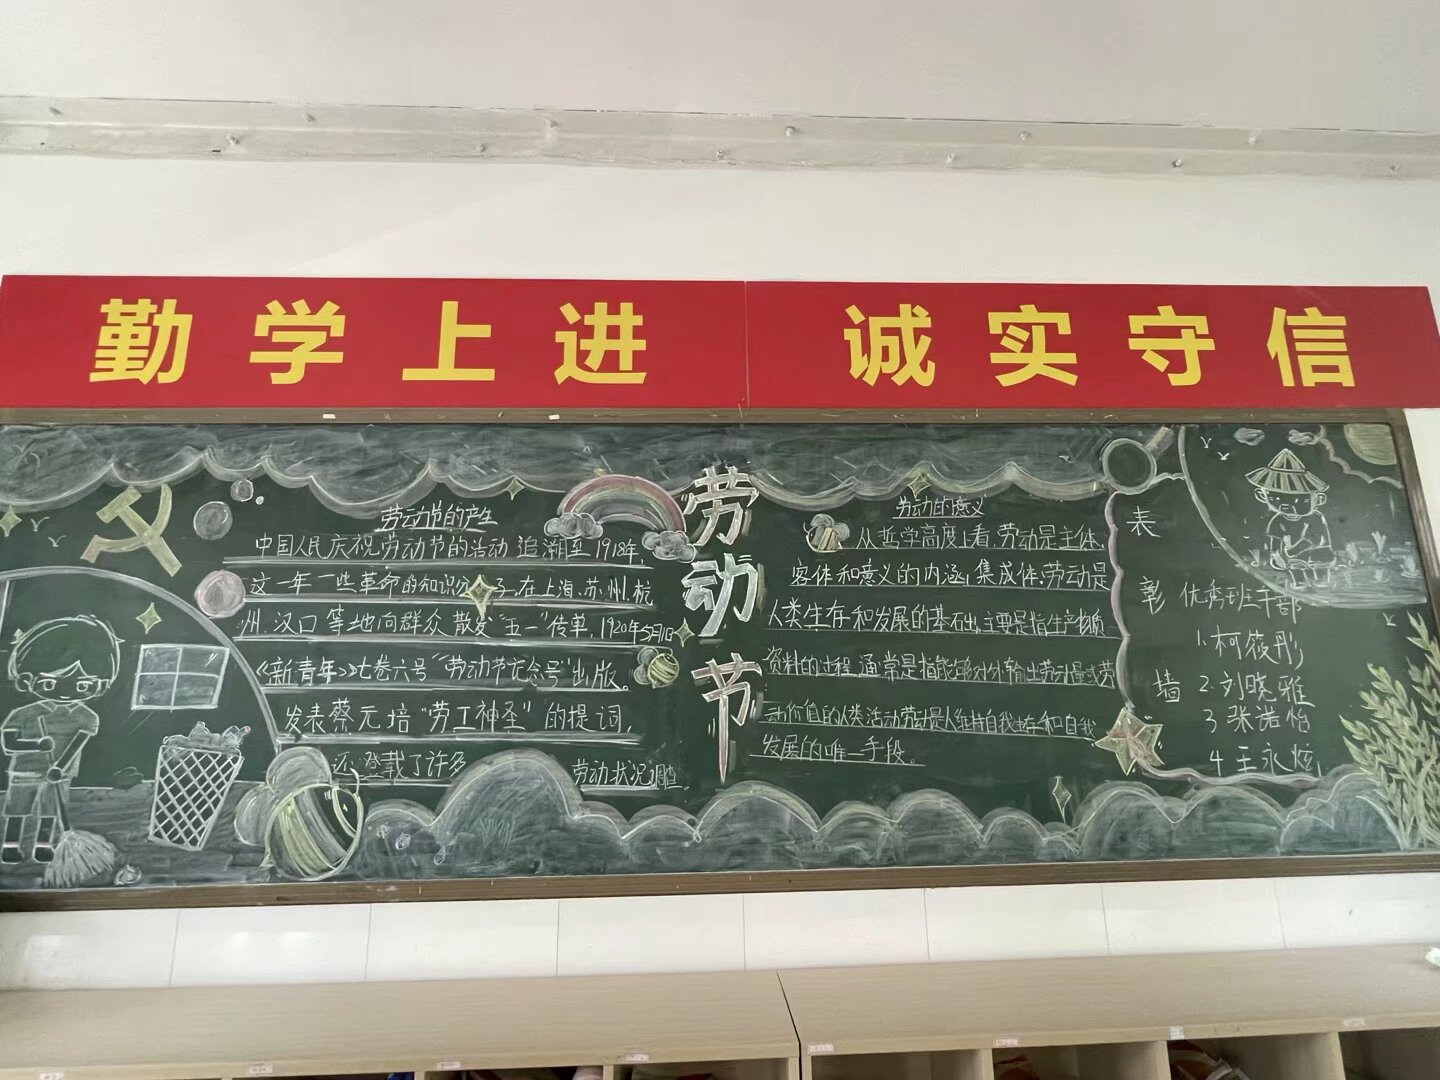 勤学上进 诚实守信
劳动节的产生
中国人民庆祝劳动节的活动追溯至1918年,
这一年一些革命的知识分子,在上海、苏州、杭
州、汉口等地向群众散发"五一"传单,1920年5月1日
《新青年》七卷六号"劳动节纪念号"出版。
发表蔡元培"劳工神圣"的提词,
还登载了许多 劳动状况调查
劳动节
劳动的意义
从哲学高度上看,劳动是主体、
客体和意义的内涵、集成体,劳动是
人类生存和发展的基础,主要是指生产物质
资料的过程,通常是指能够对外输出劳动量或劳
动价值的人类活动,劳动是人维持自我生存和自我
发展的唯一手段。
表彰墙
优秀班干部
1.柯筱彤
2.刘晓雅
3 张诺怡
4 王永炫